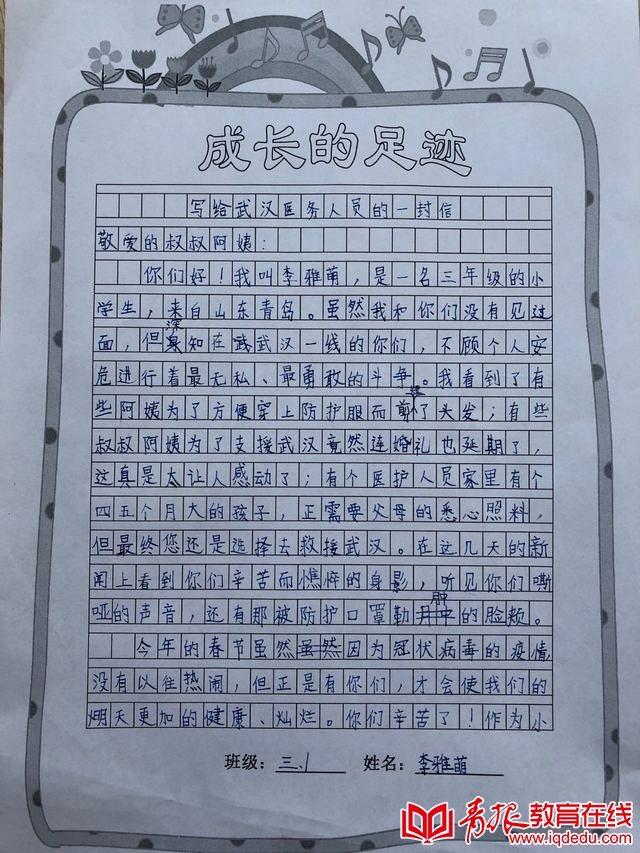 成长的足迹
写给武汉医务人员的一封信
敬爱的叔叔阿姨：
你们好！我叫李雅萌，是一名三年级的小
学生，来自山东青岛。虽然我和你们没有见过
面，但深知在武汉一线的你们，不顾个人安
危进行着最无私、最勇敢的斗争。我看到了有
些阿姨为了方便穿上防护服而剪了头发；有些
叔叔阿姨为了支援武汉竟然连婚礼也延期了，
这真是太让人感动了；有个医护人员家里有个
四五个月大的孩子，正需要父母的悉心照料，
但最终您还是选择去救援武汉。在这几天的新
闻上看到你们辛苦而憔悴的身影，听见你们嘶
哑的声音，还有那被防护口罩勒肿的脸颊。
今年的春节虽然因为冠状病毒的疫情，
没有以往热闹，但正是有你们，才会使我们的
明天更加的健康、灿烂。你们辛苦了！作为小
班级：三、1 姓名：李雅萌
青报教育在线
www.iqdedu.com